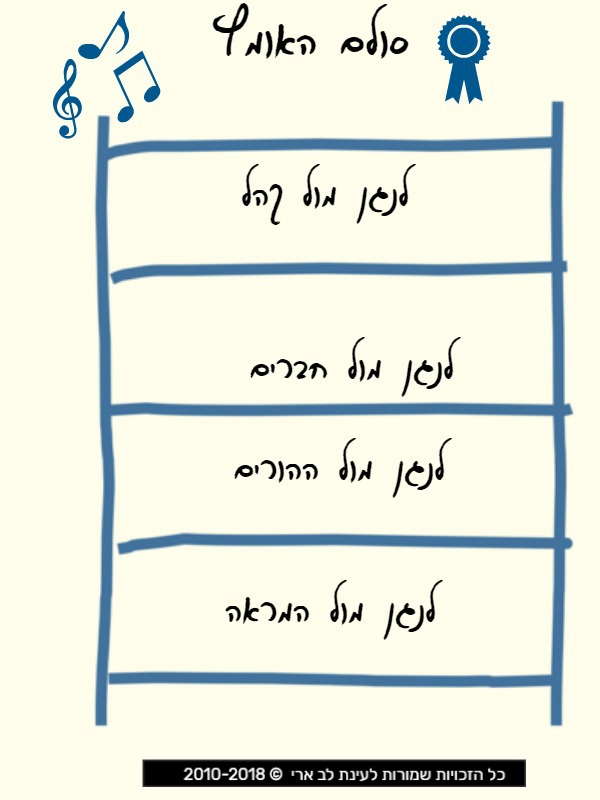 סולם האומץ
לנגן מול קהל
לנגן מול חברים
לנגן מול ההורים
לנגן מול המראה
כל הזכויות שמורות לעינת לב ארי © 2010-2018